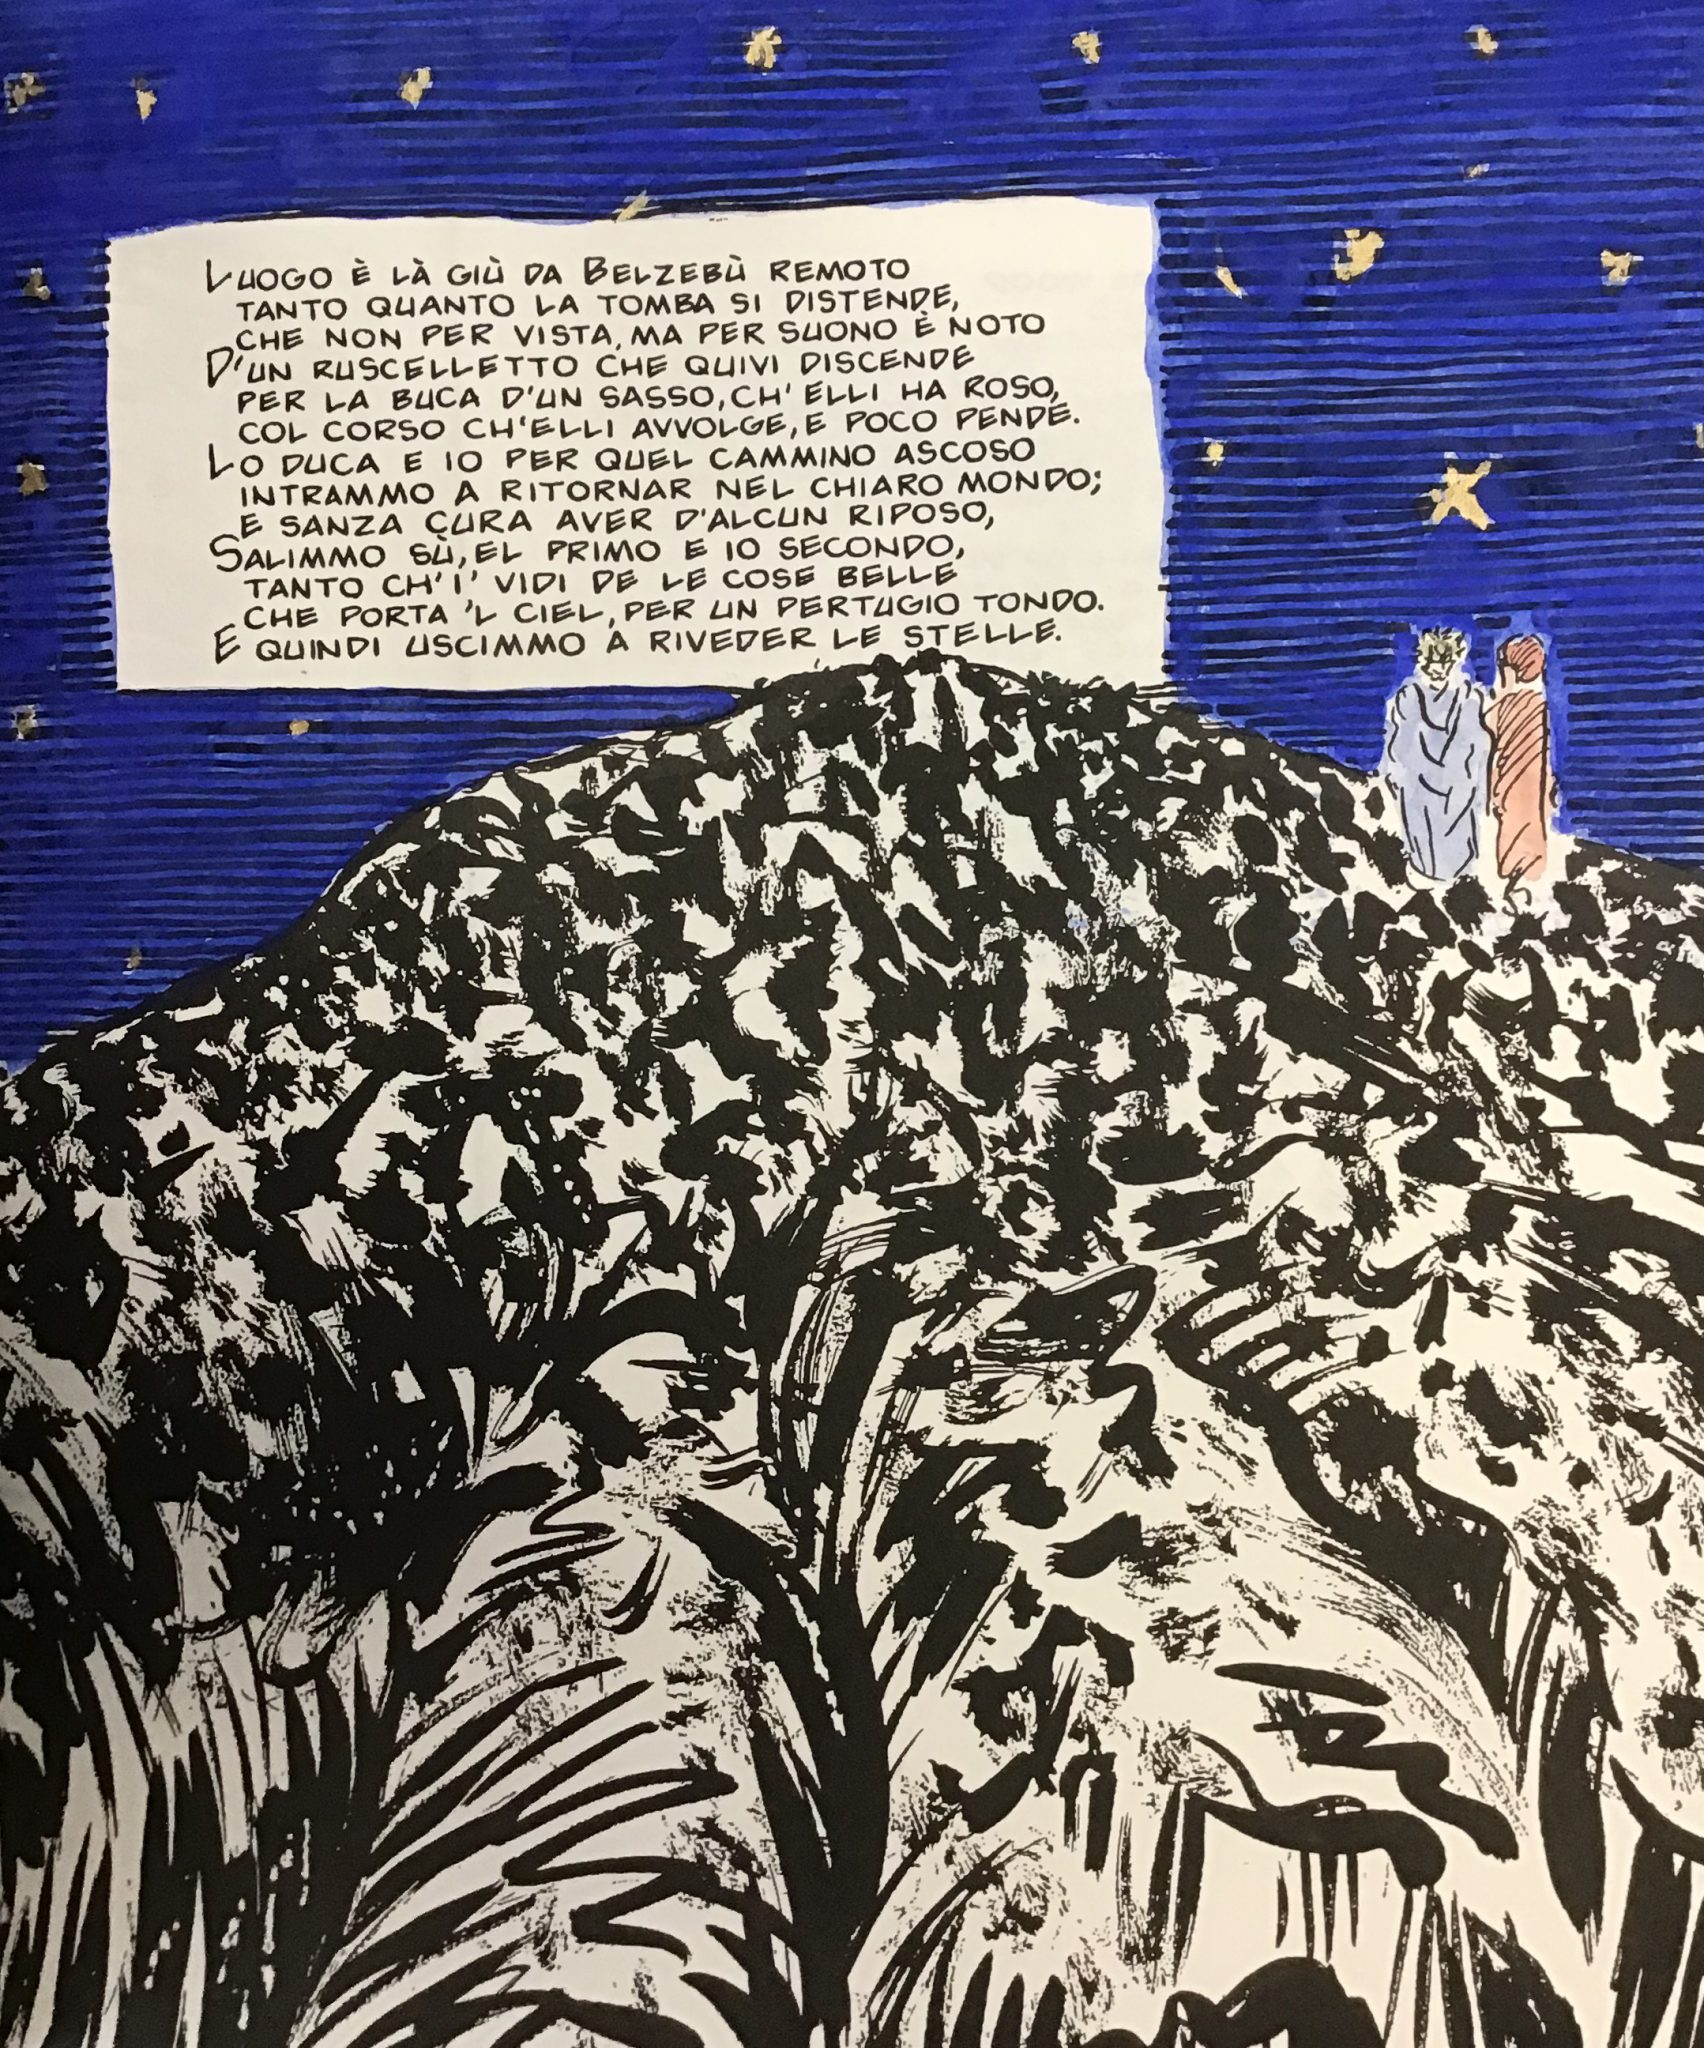 LUOGO È LÀ GIÙ DA BELZEBÙ REMOTO
TANTO QUANTO LA TOMBA SI DISTENDE,
CHE NON PER VISTA, MA PER SUONO È NOTO
D'UN RUSCELLETTO CHE QUIVI DISCENDE
PER LA BUCA D'UN SASSO, CH'ELLI HA ROSO,
COL CORSO CH'ELLI AVVOLGE, E POCO PENDE.
LO DUCA E IO PER QUEL CAMMINO ASCOSO
INTRAMMO A RITORNAR NEL CHIARO MONDO;
E SANZA CURA AVER D'ALCUN RIPOSO,
SALIMMO SÙ, EL PRIMO E IO SECONDO,
TANTO CH'I' VIDI DE LE COSE BELLE
CHE PORTA 'L CIEL, PER UN PERTUGIO TONDO.
E QUINDI USCIMMO A RIVEDER LE STELLE.